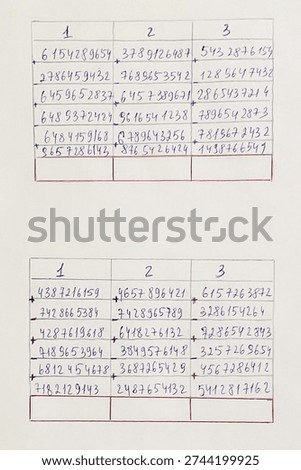 1 2 3
6154289654 3789126487 5432876159
2786459432 7689653542 1289647432
6459652837 6457389671 2865437214
6489372424 961654 1238 7896542873
6484159168 6789643256 7819672432
9657286143 8765426424 1498766549
shutterstock
1 2 3
4387216159 4657896421 6157263872
7428665384 7428965789 3286154264
4287619618 6418276132 7286542843
7189653964 3849576148 3257268654
6812454678 3687265429 4567286412
7182129143 2487654132 5412817162
shutterstock.com · 2744199925